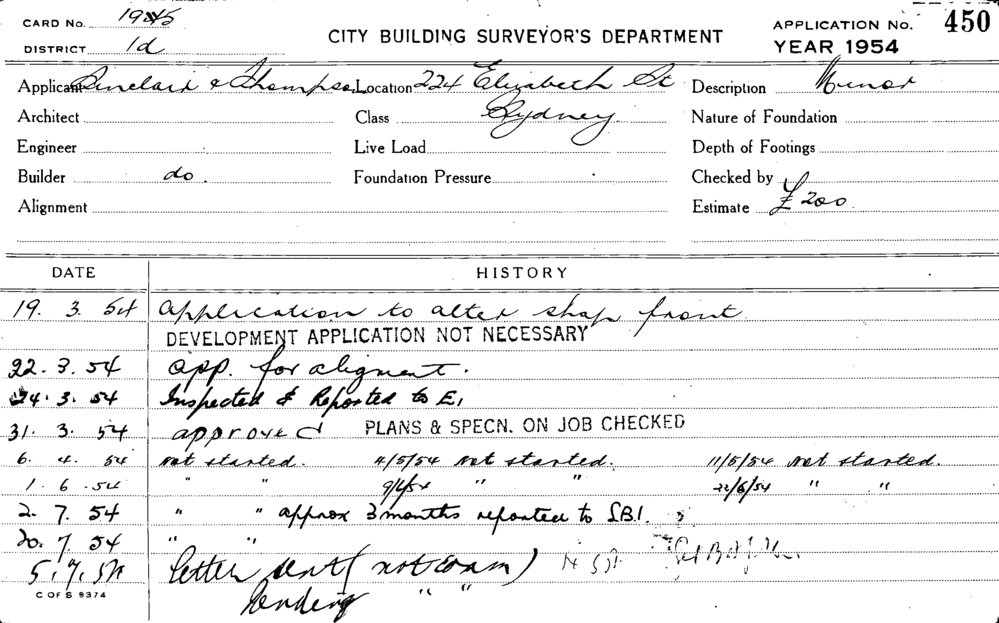 CARD No. 1945
DISTRICT 1d
CITY BUILDING SURVEYOR'S DEPARTMENT
APPLICATION No. 450
YEAR 1954
Applicant Sinclair & Thompson Location 224 Elizabeth St Description Minor
Architect Class Sydney Nature of Foundation
Engineer Live Load Depth of Footings
Builder do. Foundation Pressure Checked by
Alignment Estimate £200
DATE HISTORY
19. 3. 54 Application to alter shop front
DEVELOPMENT APPLICATION NOT NECESSARY
22. 3. 54 app. for aligment.
24. 3. 54 Inspected & Reported to E1
31. 3. 54 approved PLANS & SPECN. ON JOB CHECKED
6. 4. 54 Not started. 4/5/54 Not started. 11/5/54 Not started.
1. 6. 54 " " 9/6/54 " " 22/6/54 " "
2. 7. 54 " " approx 3 months reported to S.B.I.
20. 7. 54 " "
5. 7. 54 letter sent (not com)
C OF S 9374
Pending " "